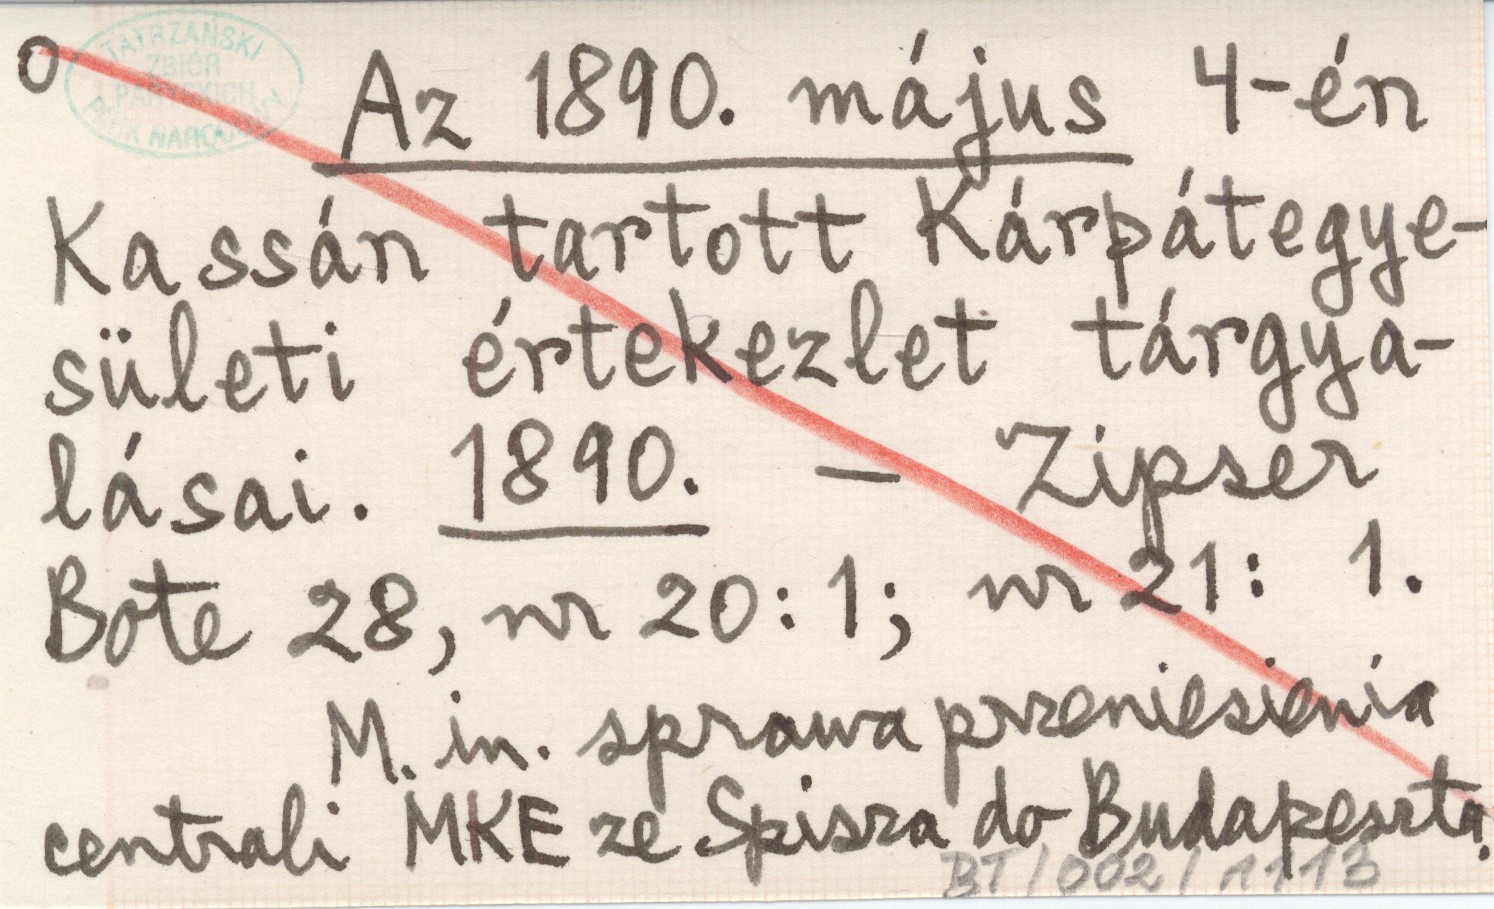 o
TATRZAŃSKI
ZBIÓR
PARYSKICH
NARODOWY
Az 1890. május 4-én
Kassán tartott Kárpátegye-
sületi értekezlet tárgya-
lásai. 1890. — Zipser
Bote 28, nr 20: 1; nr 21: 1.
M. in. sprawa przeniesienia
centrali MKE ze Spisza do Budapesztu.
BT/002/1113